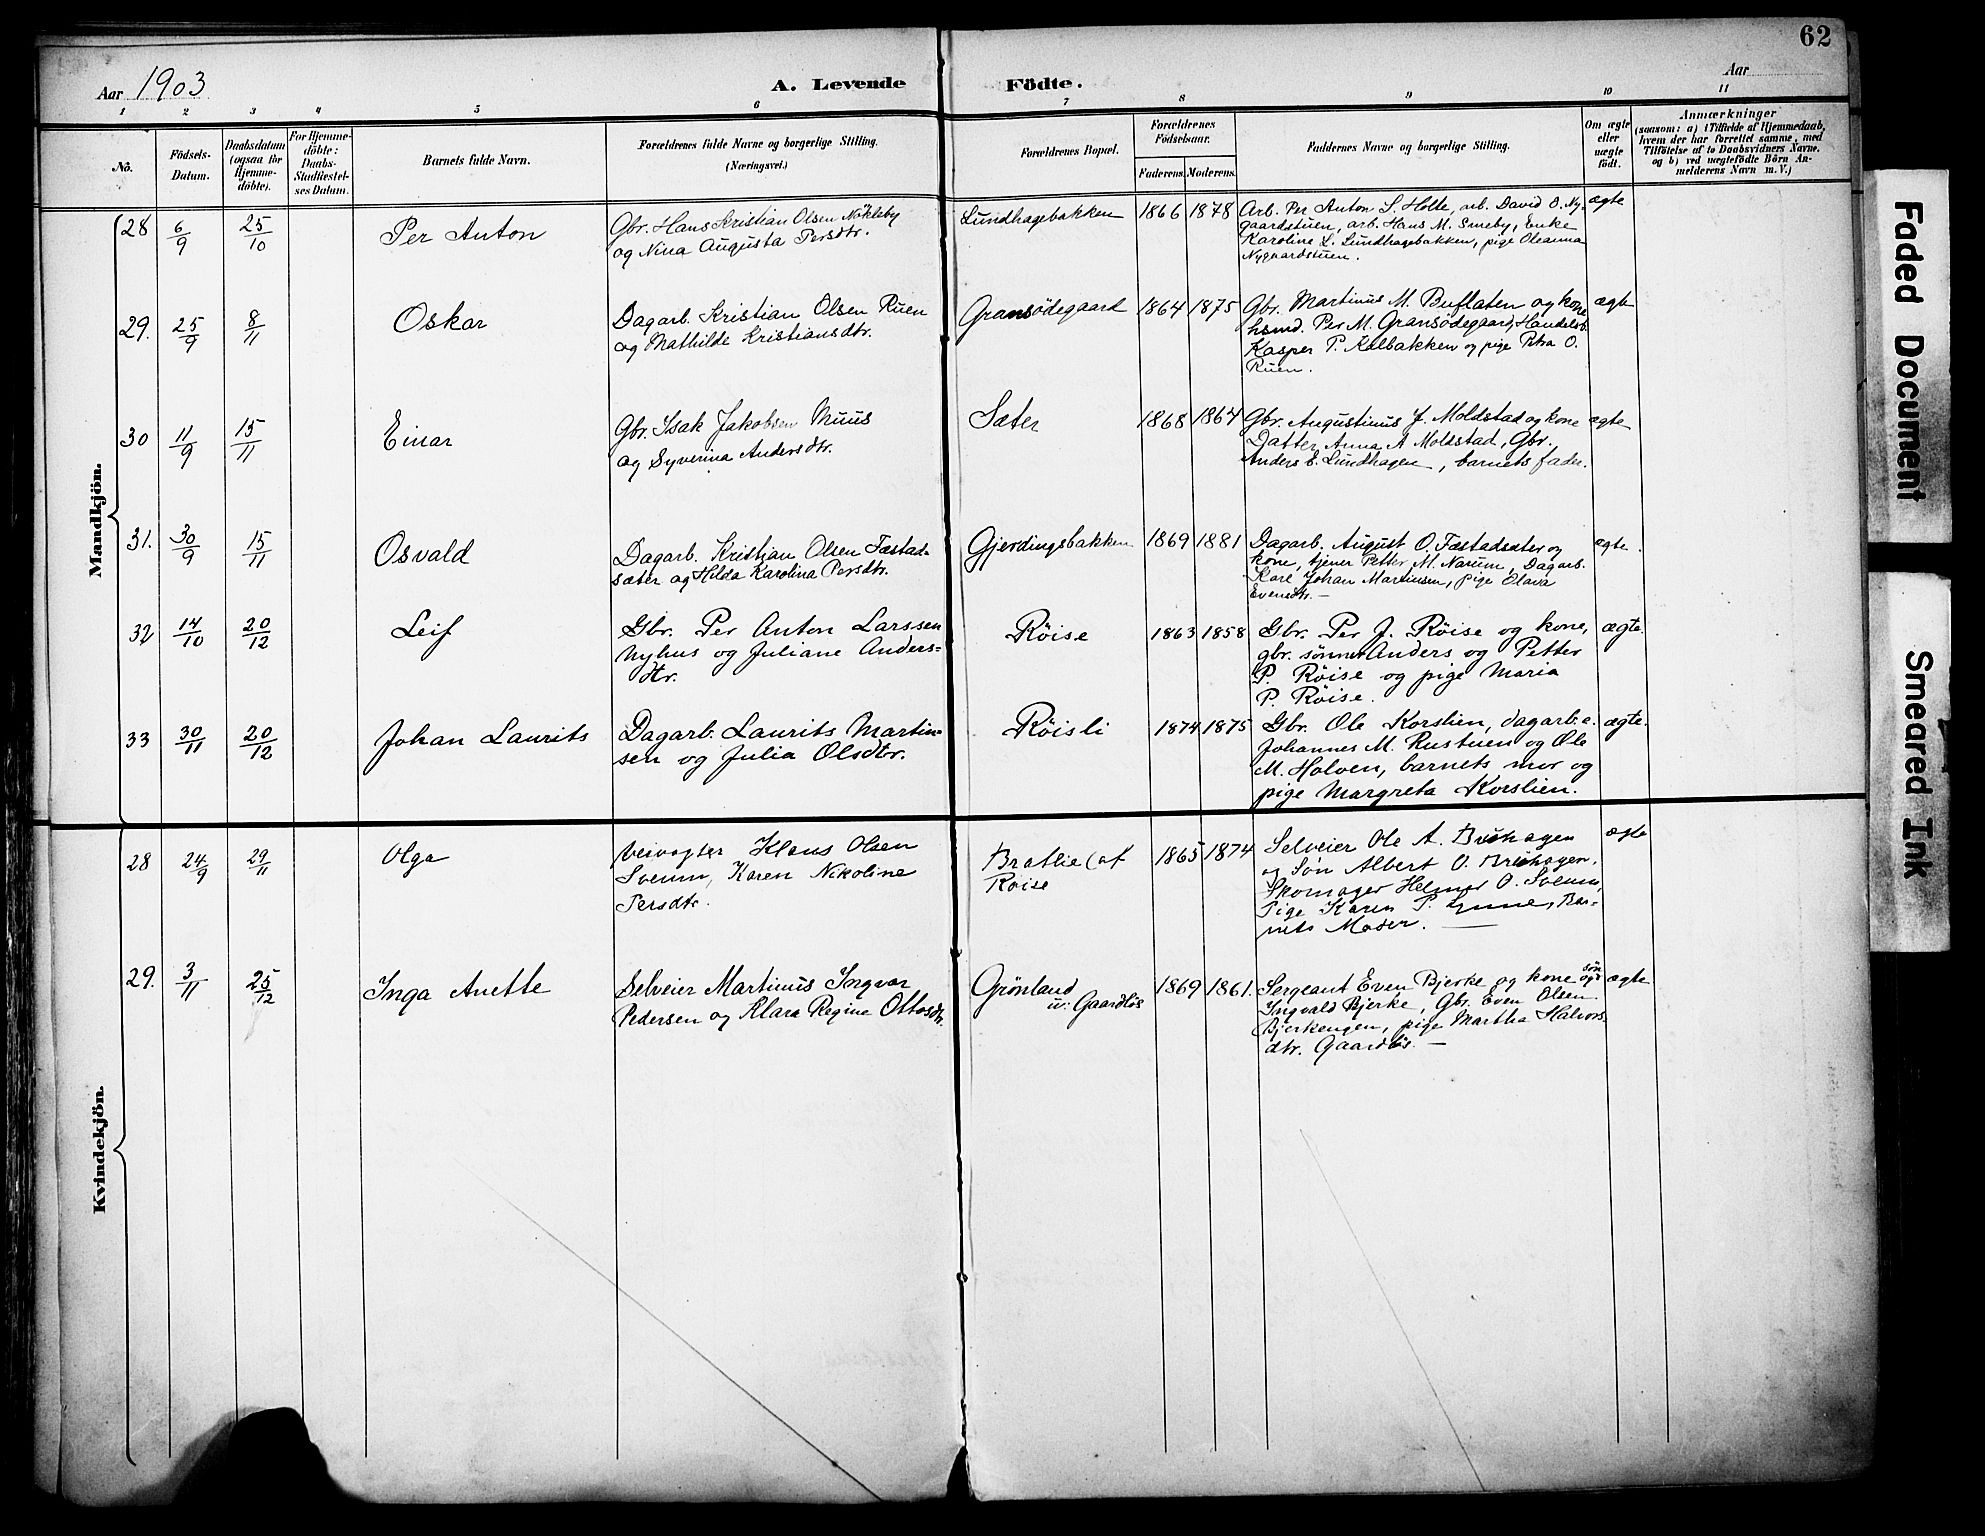 62
Aar 1903
A. Levende Födte.
Aar
1 2 3 4 5 6 7 8 9 10 11
No.
Födsels-
Datum.
Daabsdatum
(ogsaa for
Hjemme-
döbte).
For Hjemme-
döbte:
Daabs-
Stadfæstel-
ses Datum.
Barnets fulde Navn.
Forældrenes fulde Navne og borgerlige Stilling.
(Næringsvei.)
Forældrenes Bopæl.
Forældrenes
Födselsaar.
Faderens. Moderens.
Faddernes Navne og borgerlige Stilling.
Om ægte
eller
uægte
födt.
Anmærkninger
(saasom: a) i Tilfælde af Hjemmedaab,
hvem der har forrettet samme, med
Tilföielse af to Daabsvidners Navne.
og b) ved uægtefödte Börn An-
melderens Navn m. V.)
Mandkjön.
28 6/9 25/10 Per Anton
Gbr. Hans Kristian Olsen Nökleby
og Nina Augusta Persdtr.
Lundhagebakken 1866 1878
Arb. Per Anton S. Holte, arb. David O. Ny-
gaardstuen, arb. Hans M. Smeby, Enke
Karoline L. Lundhagebakken, pige Oleanna
Nygaardstuen.
ægte
29. 25/9 8/11 Oskar
Dagarb. Kristian Olsen Ruen
og Mathilde Kristiansdtr.
Gransödegaard 1864 1875
Gbr. Martinus M. Buflaten og kone
hsmd. Per M. Gransödegaard, Handelsb.
Kasper P. Kalbakken og pige Petra O.
Ruen.
ægte
30 11/9 15/11 Einar
Gbr. Isak Jakobsen Muus
og Syverina Andersdtr.
Sæter 1868 1864
Gbr. Augustinus J. Moldstad og kone
Datter Anna A Moldstad, Gbr.
Anders E. Lundhagen, barnets fader.
ægte
31. 30/9 15/11 Osvald
Dagarb. Kristian Olsen Fæstad-
sæter og Hilda Karolina Persdtr.
Gjerdingsbakken 1869 1881
Dagarb. August O. Fæstadsæter og
kone, tjener Petter M. Narum, Dagarb.
Karl Johan Martinsen, pige Olava
Evensdtr. —
ægte.
32 14/10 20/12 Leif
Gbr. Per Anton Larssen
Nyhus og Juliane Anders-
dtr.
Röise 1863 1858
Gbr. Per J. Röise og kone,
gbr. sønner Anders og Petter
P. Röise og pige Maria
P. Röise.
ægte.
33 30/11 20/12 Johan Laurits
Dagarb. Laurits Martin-
sen og Julia Olsdtr.
Röisli 1874 1875
Gbr. Ole Korslien, dagarb.e.
Johannes M. Rustuen og Ole
M. Holven, barnets mor og
pige Margreta Korslien.
ægte.
Kvindekjön.
28 24/9 29/11 Olga
Veivogter Klaus Olsen
Sveum, Karen Nikoline
Persdtr.
Bratlie (af
Röise
1865 1874
Selveier Ole A.
og Søn Albert O.
Skomager Helmer O. Sveum,
Pige Karen P. Lynne, Bar-
nets Moder. —
ægte
29. 3/11 25/12 Inga Anette
Selveier Martinus Ingvar
Pedersen og Klara Regine Ottosdtr.
Grönland
u. Gaardlös
1869 1861.
Sergeant Even Bjerke og kone og søn
Ingvald Bjerke, Gbr. Even Olsen
Bjerkengen, pige Martha Halvors-
dtr. Gaardlös. —
ægte
Faded Document
Smeared Ink